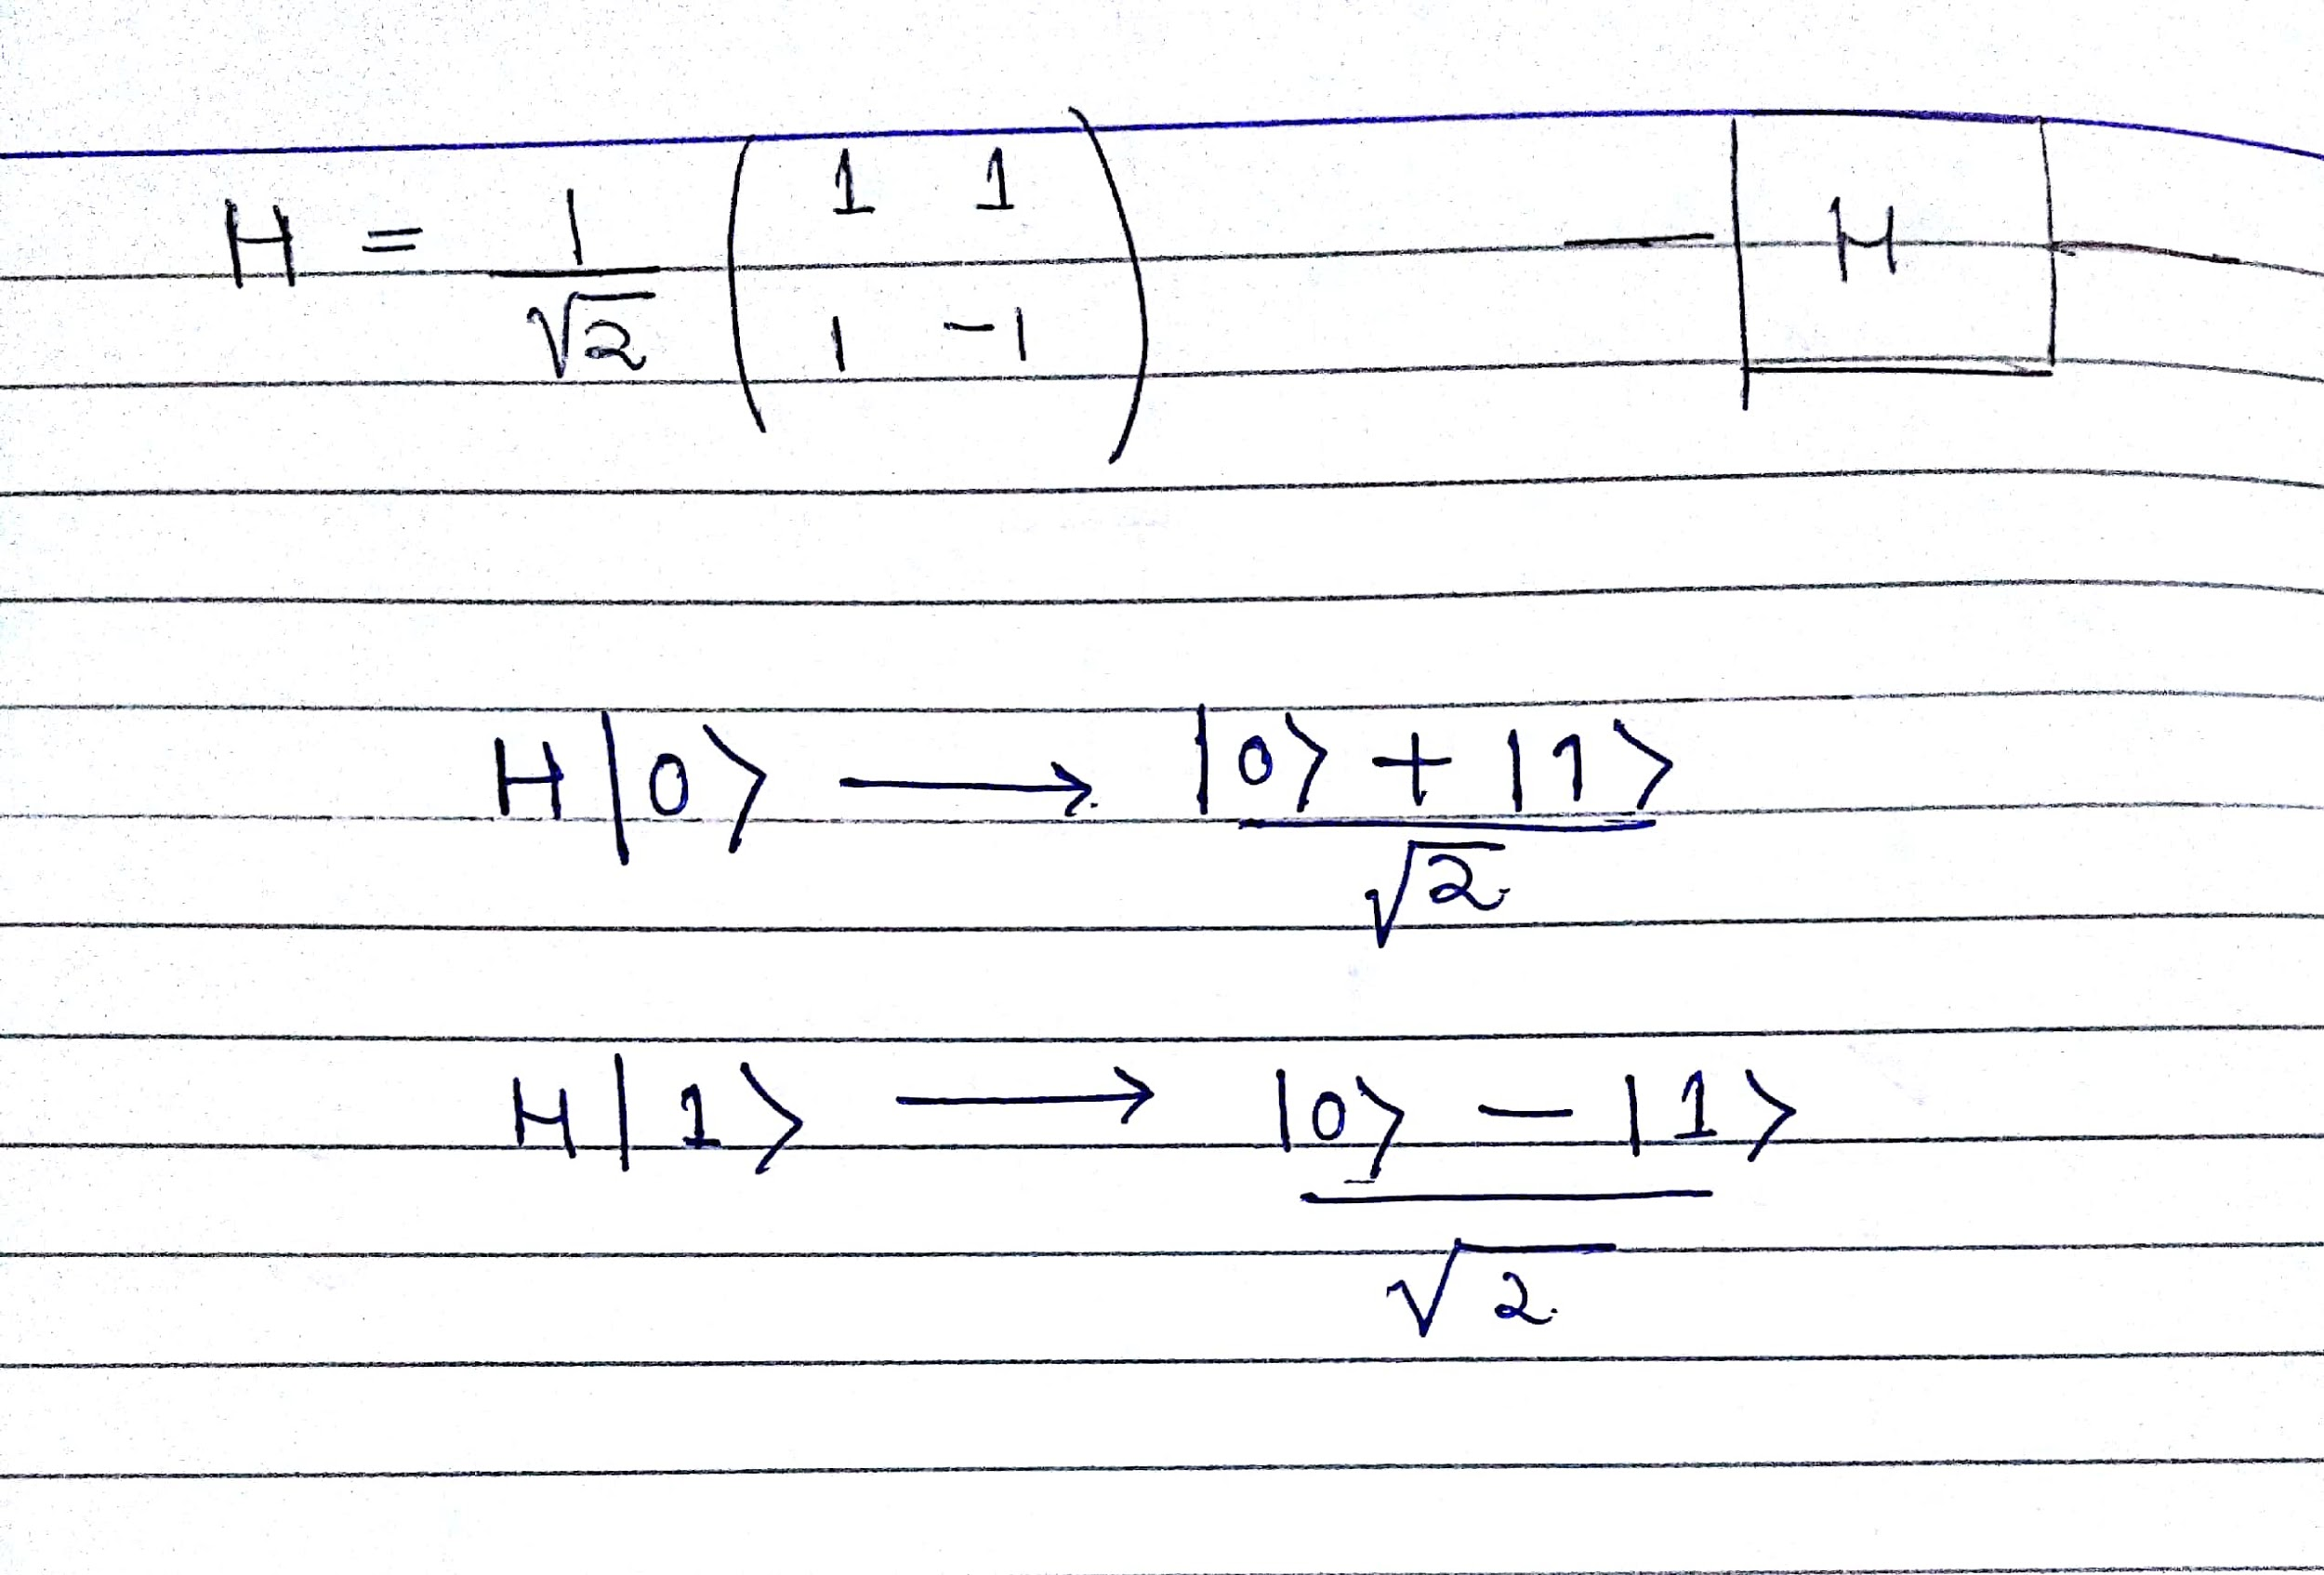 H = 1/√2 ( 1 1 ; 1 -1 ) —[ H ]—
H|0⟩ ⟶ (|0⟩ + |1⟩)/√2
H|1⟩ ⟶ (|0⟩ − |1⟩)/√2